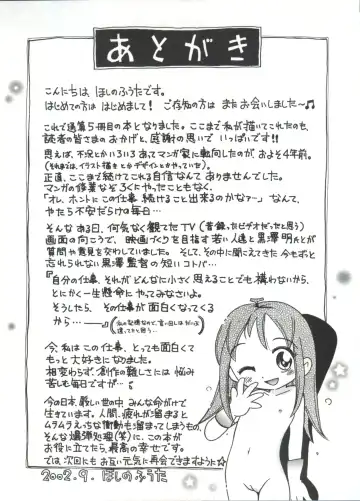 あとがき
こんにちは ほしのふうたです。
はじめての方は はじめまして！ ご存知の方は またお会いしました〜♫
これで通算5冊目の本となりました。ここまで私が描いてこれたのも、
読者の皆さまのおかげと、感謝の思いで いっぱいです!!
思えば、不況とかいろいろあってマンガ家に転向したのが、およそ4年前。
(それまでは、イラスト描きとかデザインとかやっていた)
正直、ここまで続けてこれる自信なんて ありませんでした。
マンガの修業など ろくにやったこともなく、
「オレ、ホントにこの仕事 続けること出来るのかなァー」 なんて、
やたら不安だらけの毎日…
そんな ある日、何気なく観てたTV(昔録ったビデオだったと思う)
画面の向こうで、映画づくりを目指す若い人達と黒澤明氏とが
質問や意見を交わしていました。 そして、その中に聞こえてきた 今もずっと
忘れられない 黒澤監督の短いコトバ…
『自分の仕事、それが どんなに小さく思えることでも 構わないから、
とにかく一生懸命に やってみなさいよ。
そうしたら、 その仕事が 面白くなってくる
から……』
今、私は この仕事、とっても面白くて
もっと 大好きになりました。
相変わらず、創作の難しさには 悩み
苦しも毎日ですが…
今の日本、厳しい世の中 みんな命がけで
生きています。人間、疲れが溜まると
ムラムラえっちな衝動も溜まってしまうもの。
そんな 爆弾処理(笑)に、この本が
お役に立てたら、最高の幸せです。
では、次回にも お互い元気に再会できますように☆
2002.9. ほしのふうた